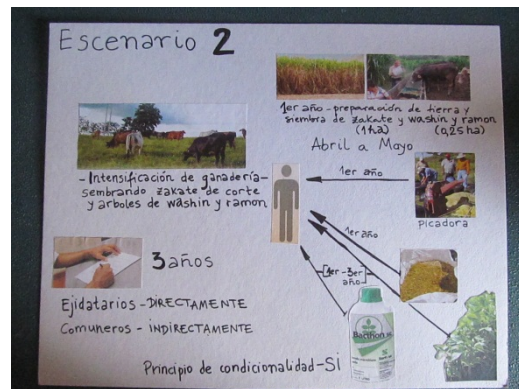 Escenario 2
1er año - preparación de tierra y
siembra de zakate y washin y ramon
(1 ha) (0,25 ha)
Abril a Mayo
- Intensificación de ganadería -
sembrando zakate de corte
y arboles de washin y ramon
1er año
Picadora
1er año
1er - 3er
año
3 años
Ejidatarios - DIRECTAMENTE
Comuneros - INDIRECTAMENTE
Principio de condicionalidad - Si